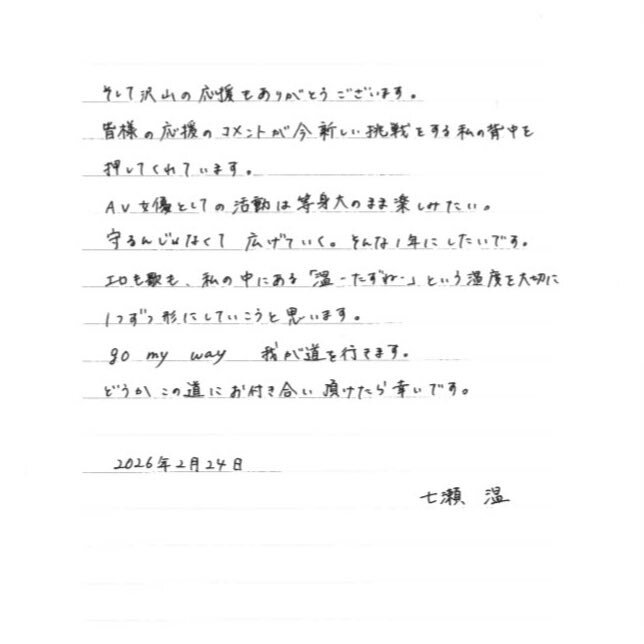 そして沢山の応援もありがとうございます。
皆様の応援のコメントが今 新しい挑戦をする私の背中を
押してくれています。
AV女優としての活動は等身大のまま楽しみたい。
守るんじゃなくて 広げていく。そんな1年にしたいです。
エロも歌も、私の中にある「温-たずね-」という温度を大切に
1つずつ形にしていこうと思います。
go my way 我が道を行きます。
どうかこの道にお付き合い頂けたら幸いです。
2026年2月24日
七瀬 温